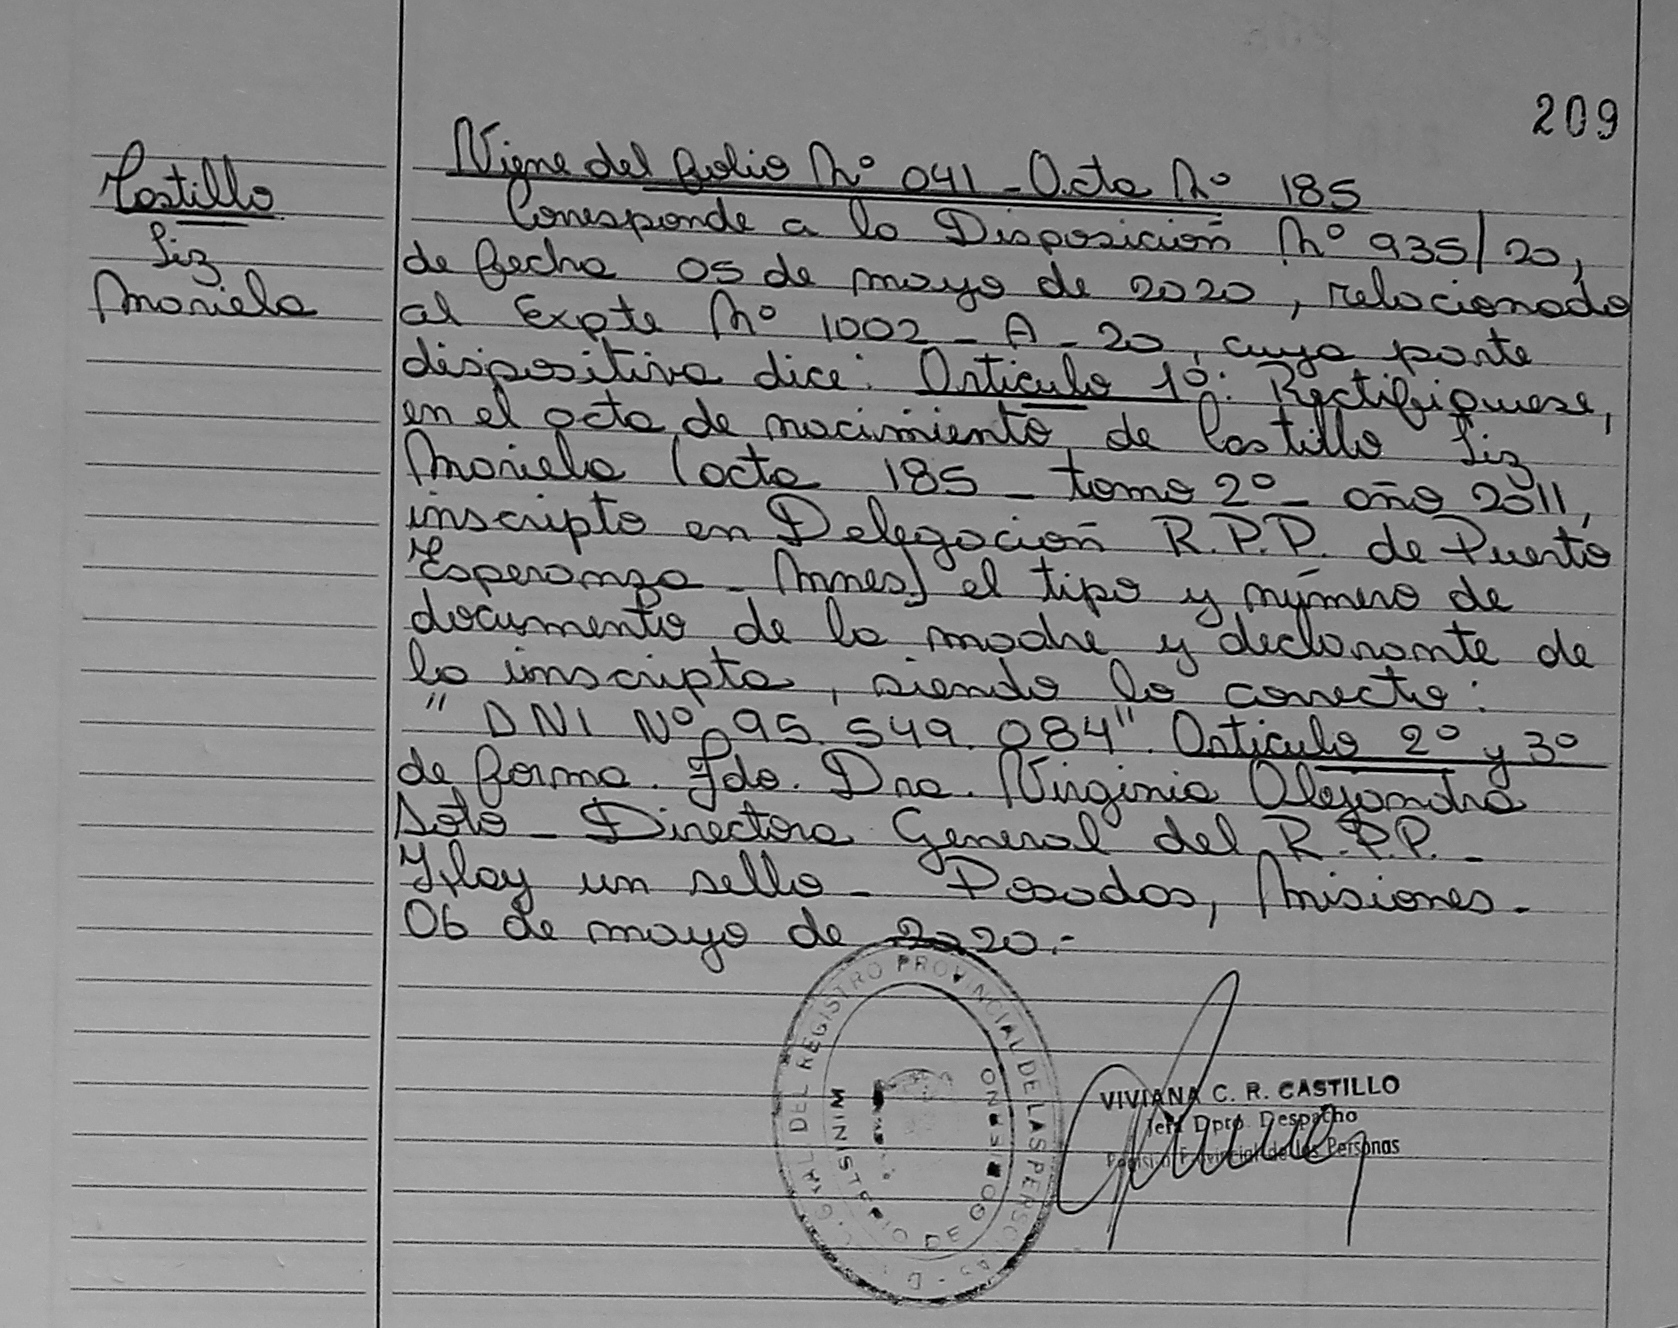 209
Castillo
Liz
Mariela
Viene del folio Nº 041 - Acta Nº 185
Corresponde a la Disposición Nº 935/20,
de fecha 05 de mayo de 2020, relacionado
al Expte Nº 1002 - A - 20, cuya parte
dispositiva dice: Artículo 1º: Rectifiquese,
en el acta de nacimiento de Castillo Liz
Mariela (acta 185 - tomo 2º - año 2011,
inscripto en Delegación R.P.P. de Puerto
Esperanza - Mnes) el tipo y número de
documento de la madre y declarante de
la inscripta, siendo lo correcto:
"DNI Nº 95.549.084". Artículo 2º y 3º
de forma. Fdo. Dra. Virginia Alejandra
Soto - Directora General del R.P.P. -
Hay un sello - Posadas, Misiones.
06 de mayo de 2020.-
REGISTRO PROVINCIAL DE LAS PERSONAS
MINISTERIO DE GOBIERNO
VIVIANA C. R. CASTILLO
Jefa Dpto. Despacho
Provincial de las Personas